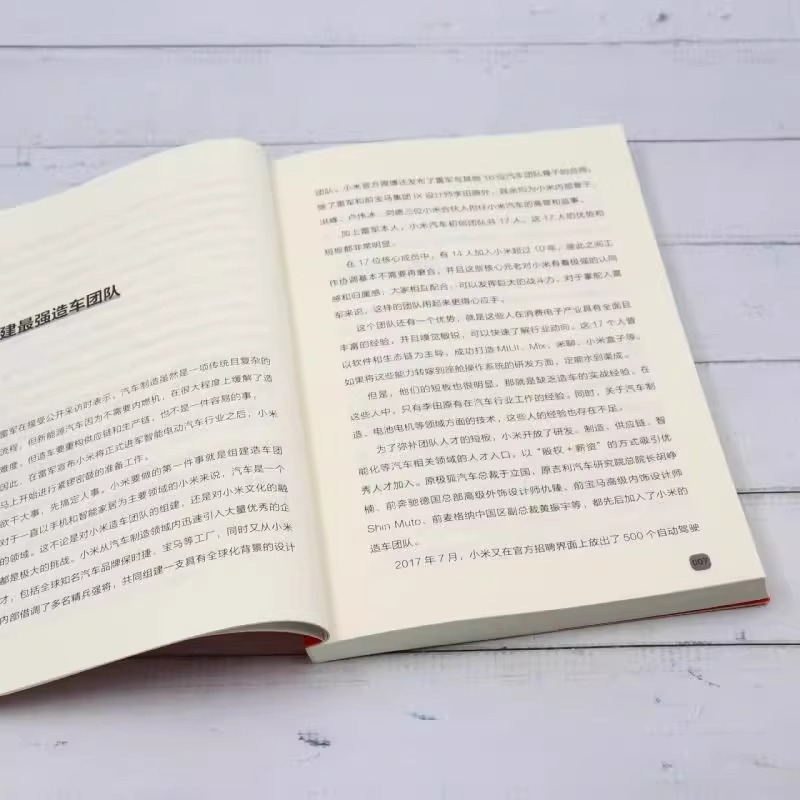 建最强造车团队
雷军在接受公开采访时表示，汽车制造虽然是一项传统且复杂的
流程，但新能源汽车因为不需要内燃机，在很大程度上缓解了造
难度，但造车要重构供应链和生产链，也不是一件容易的事，
因此，在雷军宣布小米将正式进军智能电动汽车行业之后，小米
马上开始进行紧锣密鼓的准备工作。
欲干大事，先搞定人事。小米要做的第一件事就是组建造车团
对于一直以手机和智能家居为主要领域的小米来说，汽车是一个
的领域。这不论是对小米造车团队的组建，还是对小米文化的融
都是极大的挑战。小米从汽车制造领域内迅速引入大量优秀的企
才，包括全球知名汽车品牌保时捷、宝马等工厂，同时又从小米
内部借调了多名精兵强将，共同组建一支具有全球化背景的设计
团队。小米官方微博还发布了雷军与其他16位汽车团队骨干的合照，
除了雷军和前宝马集团iX设计师李田原外，其余均为小米内部骨干，
洪峰、卢伟冰、刘德三位小米合伙人担任小米汽车的高管和监事。
加上雷军本人，小米汽车初创团队共17人，这17人的优势和
短板都非常明显。
在17位核心成员中，有14人加入小米超过10年，彼此之间工
作协调基本不需要再磨合，并且这些核心元老对小米有着极强的认同
感和归属感，大家相互配合，可以发挥巨大的战斗力。对于掌舵人雷
军来说，这样的团队用起来更得心应手。
这个团队还有一个优势，就是这些人在消费电子产业具有全面且
丰富的经验，并且嗅觉敏锐，可以快速了解行业动向。这17个人曾
以软件和生态链为主导，成功打造MIUI、Mix、米聊、小米盒子等。
如果将这些能力转嫁到座舱操作系统的研发方面，定能水到渠成。
但是，他们的短板也很明显，那就是缺乏造车的实战经验，在
这些人中，只有李田原有在汽车行业工作的经验。同时，关于汽车制
造、电池电机等领域方面的技术，这些人的经验也存在不足。
为了弥补团队人才的短板，小米开放了研发、制造、供应链、智
能化等汽车相关领域的人才入口，以“股权+薪资”的方式吸引优
秀人才加入。原极狐汽车总裁于立国、原吉利汽车研究院总院长胡峥
楠、前奔驰德国总部高级外饰设计师仇臻、前宝马高级内饰设计师
Shin Muto、前麦格纳中国区副总裁黄振宇等，都先后加入了小米的
造车团队。
2017年7月，小米又在官方招聘界面上放出了500个自动驾驶
007